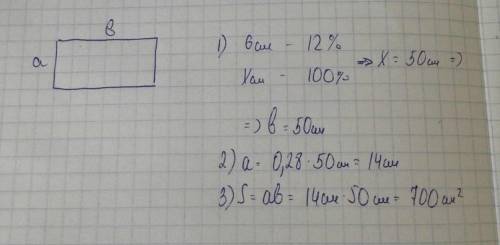 в
a
1) 6 см – 12%
X см – 100% => X = 50 см =>
=> b = 50 см
2) a = 0,28 · 50 см = 14 см
3) S = ab = 14 см · 50 см = 700 см²